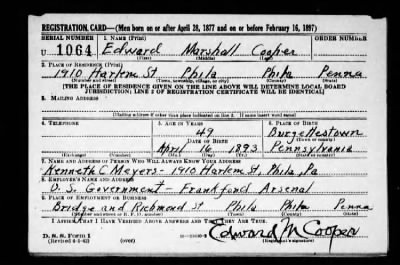 REGISTRATION CARD—(Men born on or after April 28, 1877 and on or before February 16, 1897)
SERIAL NUMBER 1. NAME (Print) ORDER NUMBER
U 1064 Edward Marshall Cooper
(First) (Middle) (Last)
2. PLACE OF RESIDENCE (Print)
1910 Harlem St Phila Phila Penna
(Number and street) (Town, township, village, or city) (County) (State)
[THE PLACE OF RESIDENCE GIVEN ON THE LINE ABOVE WILL DETERMINE LOCAL BOARD
JURISDICTION; LINE 2 OF REGISTRATION CERTIFICATE WILL BE IDENTICAL]
3. MAILING ADDRESS
[Mailing address if other than place indicated on line 2. If same insert word same]
4. TELEPHONE 5. AGE IN YEARS 6. PLACE OF BIRTH
49 Burgettestown
DATE OF BIRTH (Town or county)
April 16 1893 Pennsylvania
(Exchange) (Number) (Mo.) (Day) (Yr.) (State or country)
7. NAME AND ADDRESS OF PERSON WHO WILL ALWAYS KNOW YOUR ADDRESS
Kenneth C. Meyers - 1910 Harlem St, Phila, Pa
8. EMPLOYER'S NAME AND ADDRESS
U. S. Government - Frankford Arsenal
9. PLACE OF EMPLOYMENT OR BUSINESS
Bridge and Richmond St Phila Phila Penna
(Number and street or R. F. D. number) (Town) (County) (State)
I AFFIRM THAT I HAVE VERIFIED ABOVE ANSWERS AND THAT THEY ARE TRUE.
D. S. S. Form 1
(Revised 4-1-42) (over) Edward M Cooper
(Registrant's signature)